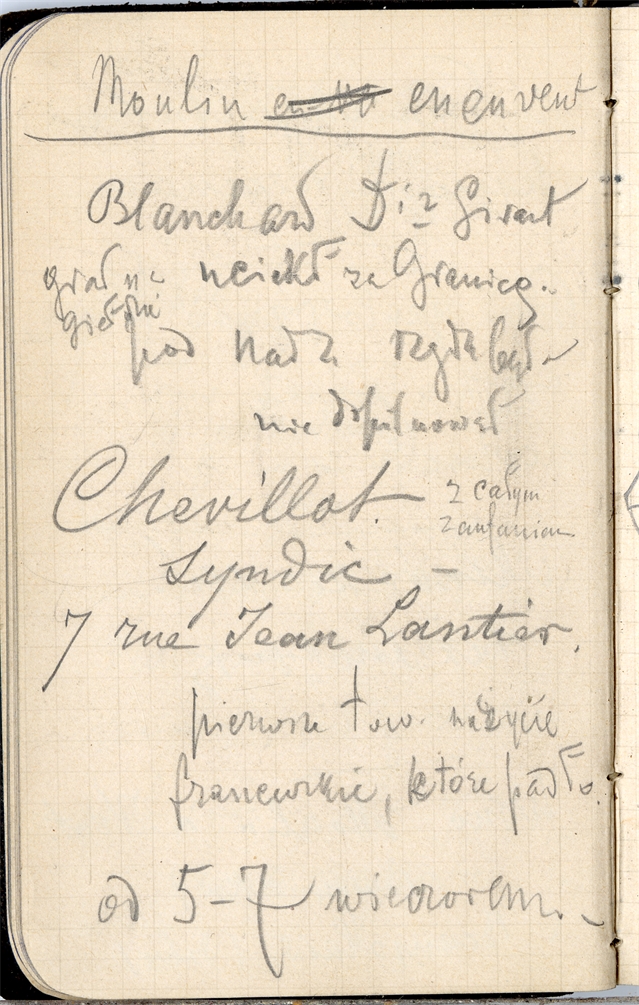 Moulin en en vent
Blanchard Dir Girart
grał na uciekł za Granicę.
giełdzie
pod nadz. rządu był
nie dopilnował
Chevillot. z całym
zaufaniem
Syndic –
7 rue Jean Lantier.
pierwsze tow. na życie
francuskie, które padło.
od 5–7 wieczorem. –